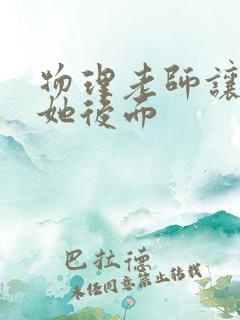 物理老师讓
她後而
巴拉德
未经同意禁止转载